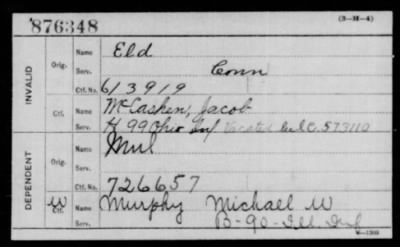 876348
(3-H-4)
INVALID
Orig.
Name Eld
Serv. Conn
Ctf. No. 613919
Ctf.
Name McCasken, Jacob
Serv. H 99 Ohio Inf
573110
DEPENDENT
Orig.
Name Mul
Serv.
Ctf. No. 726657
W Ctf.
Name Murphy Michael W
Serv. B-90-Ill. Inf